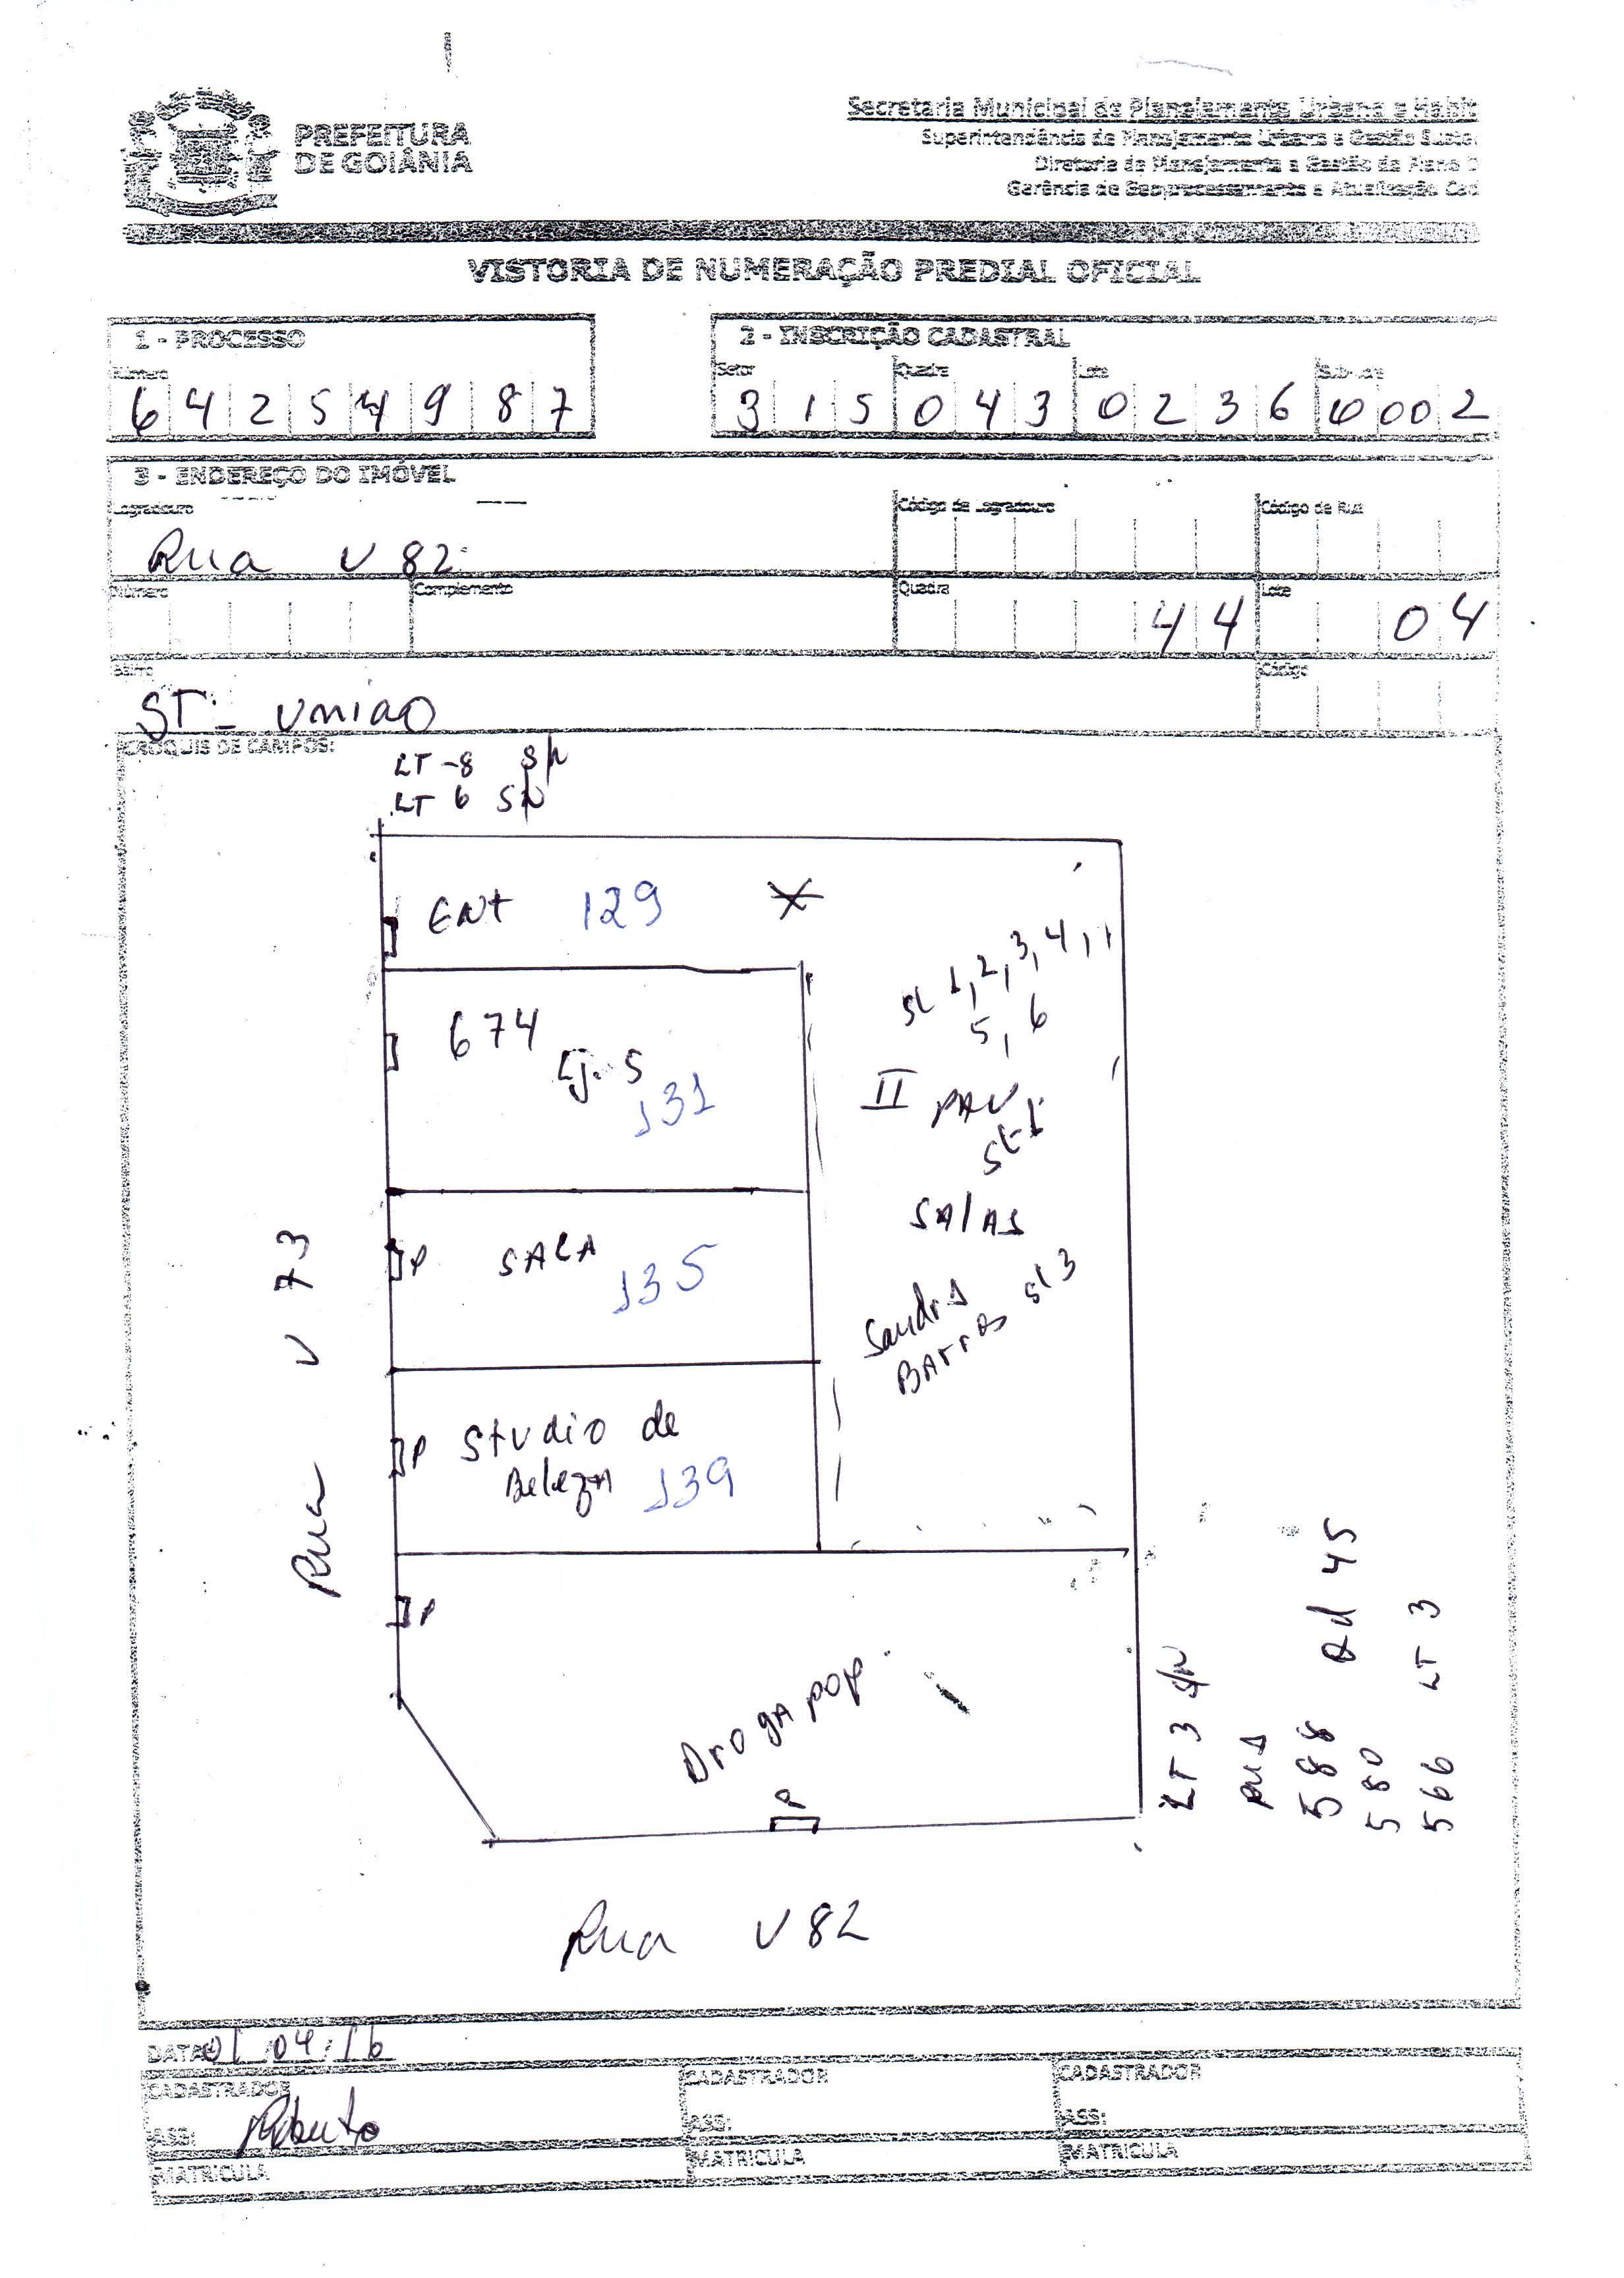 PREFEITURA
DE GOIÂNIA
Secretaria Municipal de Planejamento Urbano e Habit
Superintendência de Planejamento Urbano e Gestão Suste
Diretoria de Planejamento e Gestão do Plano D
Gerência de Geoprocessamento e Atualização Cad
VISTORIA DE NUMERAÇÃO PREDIAL OFICIAL
1 - PROCESSO
Número
6 4 2 5 4 9 8 7
2 - INSCRIÇÃO CADASTRAL
Setor Quadra Lote Sub-Lote
3 1 5 0 4 3 0 2 3 6 0 0 0 2
3 - ENDEREÇO DO IMÓVEL
Logradouro Código de Logradouro Código da Rua
Rua V 82
Número Complemento Quadra Lote
4 4 0 4
Bairro Código
ST - UNIAO
CROQUIS DE CAMPOS:
LT -8 S/N
LT 6 S/N
ENT 129
674
Lj. 5
131
SALA 135
P
Studio de
Beleza 139
P
P
SL 1, 2, 3, 4, 1
5, 6
II PAV
SL-1
SALAS
Sandra
BARROS SL 3
Rua V 73
Droga POP
P
LT 3 S/N
588 Qd 45
580
566 LT 3
Rua V82
DATA: 01/04/16
CADASTRADOR
ASS: Roberto
MATRICULA
CADASTRADOR
ASS:
MATRICULA
CADASTRADOR
ASS:
MATRICULA